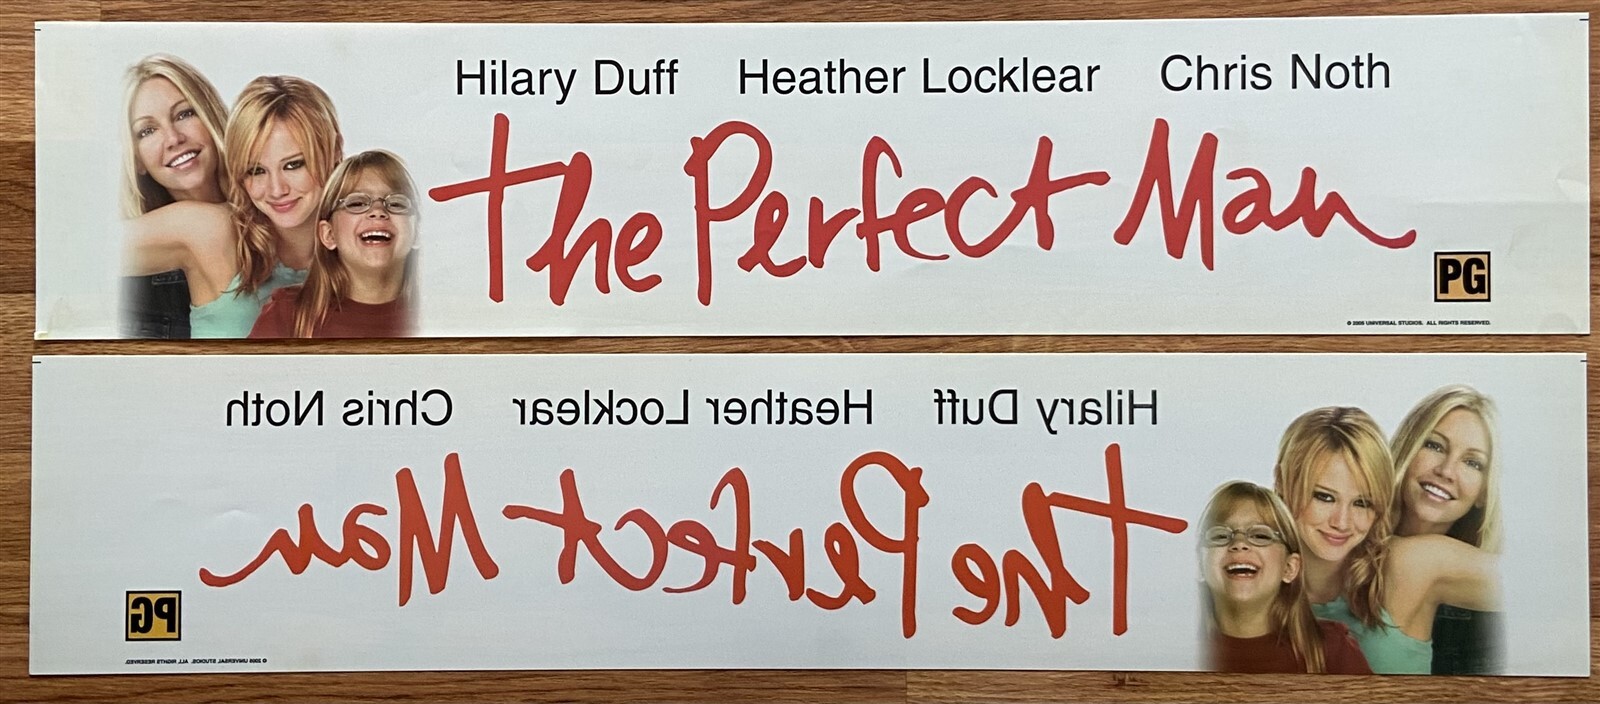 Hilary Duff Heather Locklear Chris Noth
The Perfect Man
PG
© 2005 UNIVERSAL STUDIOS. ALL RIGHTS RESERVED.
Hilary Duff Heather Locklear Chris Noth
The Perfect Man
PG
© 2005 UNIVERSAL STUDIOS. ALL RIGHTS RESERVED.